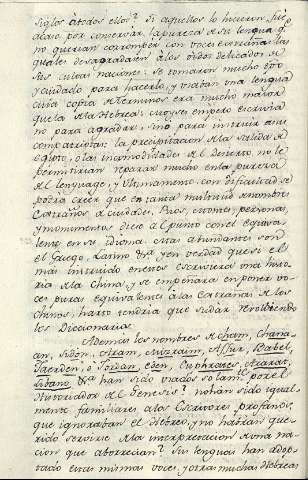 siglos atodos ellos? Si aquellos lo hicieron, fue
por conservar la pureza de su lengua q.e
no querian corromper con voces extrañas las
quales desagradarian a los oidos delicados de
sus cultas naciones: se tomaron mucho
y cuidado para hacerlo, y usaban una lengua
cuia copia de terminos era mucho maior
que la de la Hebrea; cuyo empero escrivia
no para agradar, sino para instruir a sus
compatriotas: la precipitacion de la salida de
egipto, o las incomodidades del desierto, no le
permitirian reparar mucho en la pureza
del lenguage, y ultimamente con dificultad se
podrá creer que en tanta multitud de nombres
extraños de ciudades, Rios, montes, personas,
y monumentos diese al punto con el equiva-
lente en su idioma. mas abundantes son
el Griego, Latino &a y en verdad que si el
mas instruido en ellos escriviera una histo-
ria de la China, y se empeñara en poner vo-
ces puras equivalentes a las extrañas de los
chinos, harto tendria que sudar revolviendo
los Diccionarios.
Ademas los nombres de Cham, Chana-
an, Sidon, Aram, Misraim, Assur, Babel,
Jaerden, o Jordan, eden, Euphrates, Ararat,
Libano, &a han sido usados solam.te por el
Historiador del Genesis? no han sido igual-
mente familiares a los Escritores profanos,
que ignoraban el Hebreo, y no habran que-
rido servirse de la interpretacion de una na-
cion que aborrecian? Sin lenguas han adop-
tado estas mismas voces, y otras muchas Hebreas